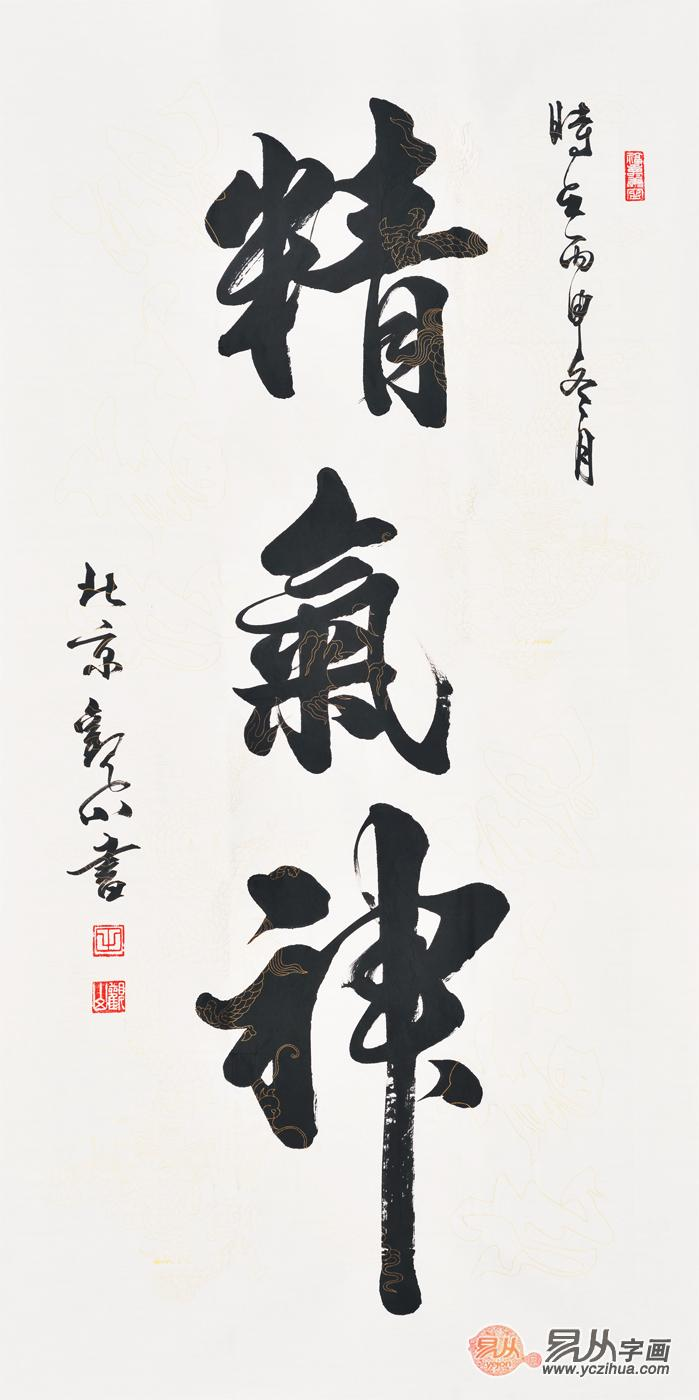 時在丙申冬月
精氣神
北京觀山書
易从字画
www.yczihua.com